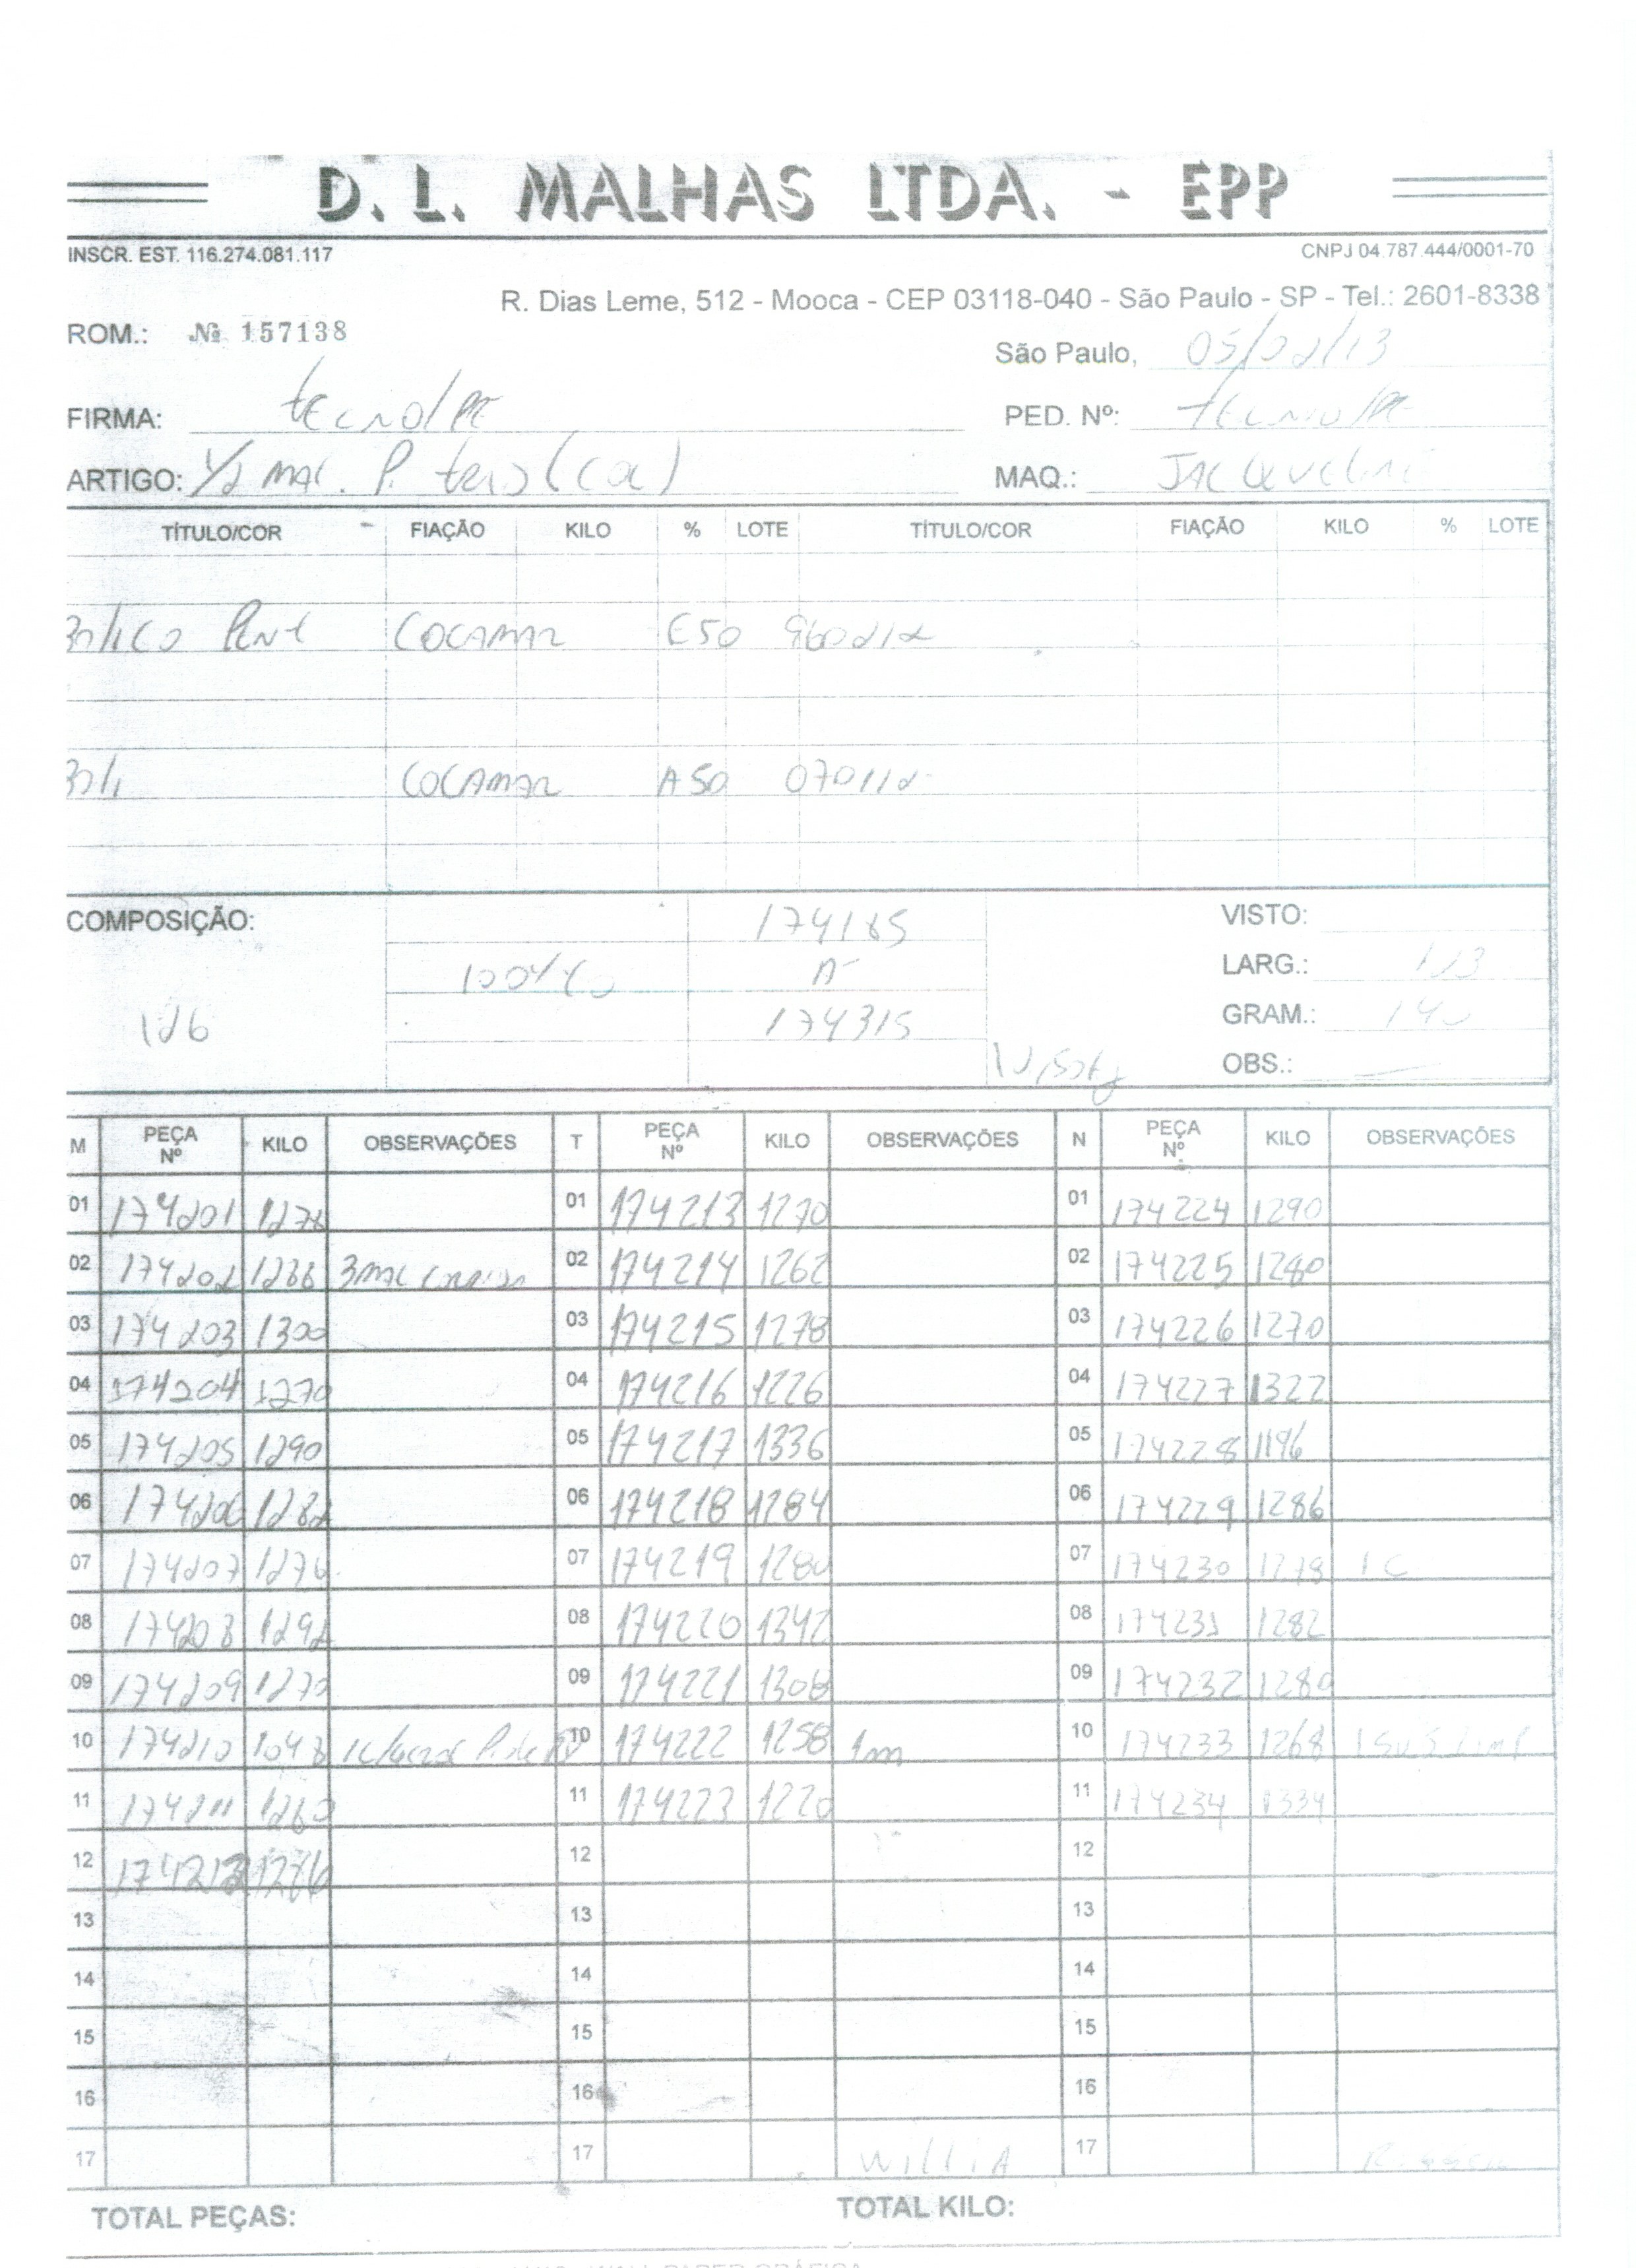 D. L. MALHAS LTDA. - EPP
INSCR. EST. 116.274.081.117 CNPJ 04.787.444/0001-70
R. Dias Leme, 512 - Mooca - CEP 03118-040 - São Paulo - SP - Tel.: 2601-8338
ROM.: Nº 157138
São Paulo, 05/02/13
FIRMA: PED. Nº:
ARTIGO: 1/2 MAC. P. MAQ.: JACQUELINE
TÍTULO/COR FIAÇÃO KILO % LOTE TÍTULO/COR FIAÇÃO KILO % LOTE
COCAMAR E50 960212
30/1 COCAMAR A50 070112
COMPOSIÇÃO: 174185 VISTO:
100% CO A LARG.:
126 174315 GRAM.: 140
OBS.:
M PEÇA Nº KILO OBSERVAÇÕES T PEÇA Nº KILO OBSERVAÇÕES N PEÇA Nº KILO OBSERVAÇÕES
01 174201 01 174213 1270 01 174224 1290
02 174202 02 174214 1262 02 174225 1280
03 174203 1300 03 174215 1278 03 174226 1270
04 174204 1270 04 174216 1226 04 174227 1322
05 174205 1290 05 174217 1336 05 174228 1196
06 174206 1282 06 174218 1284 06 174229 1286
07 174207 07 174219 1280 07 174230 1278 1 C
08 174208 1292 08 174220 1342 08 174231 1282
09 174209 1270 09 174221 1308 09 174232 1280
10 174210 1048 10 174222 1258 1m 10 174233 1268
11 174211 1260 11 174223 1220 11 174234 1334
12 174212 12 12
13 13 13
14 14 14
15 15 15
16 16 16
17 17 17
TOTAL PEÇAS: TOTAL KILO: